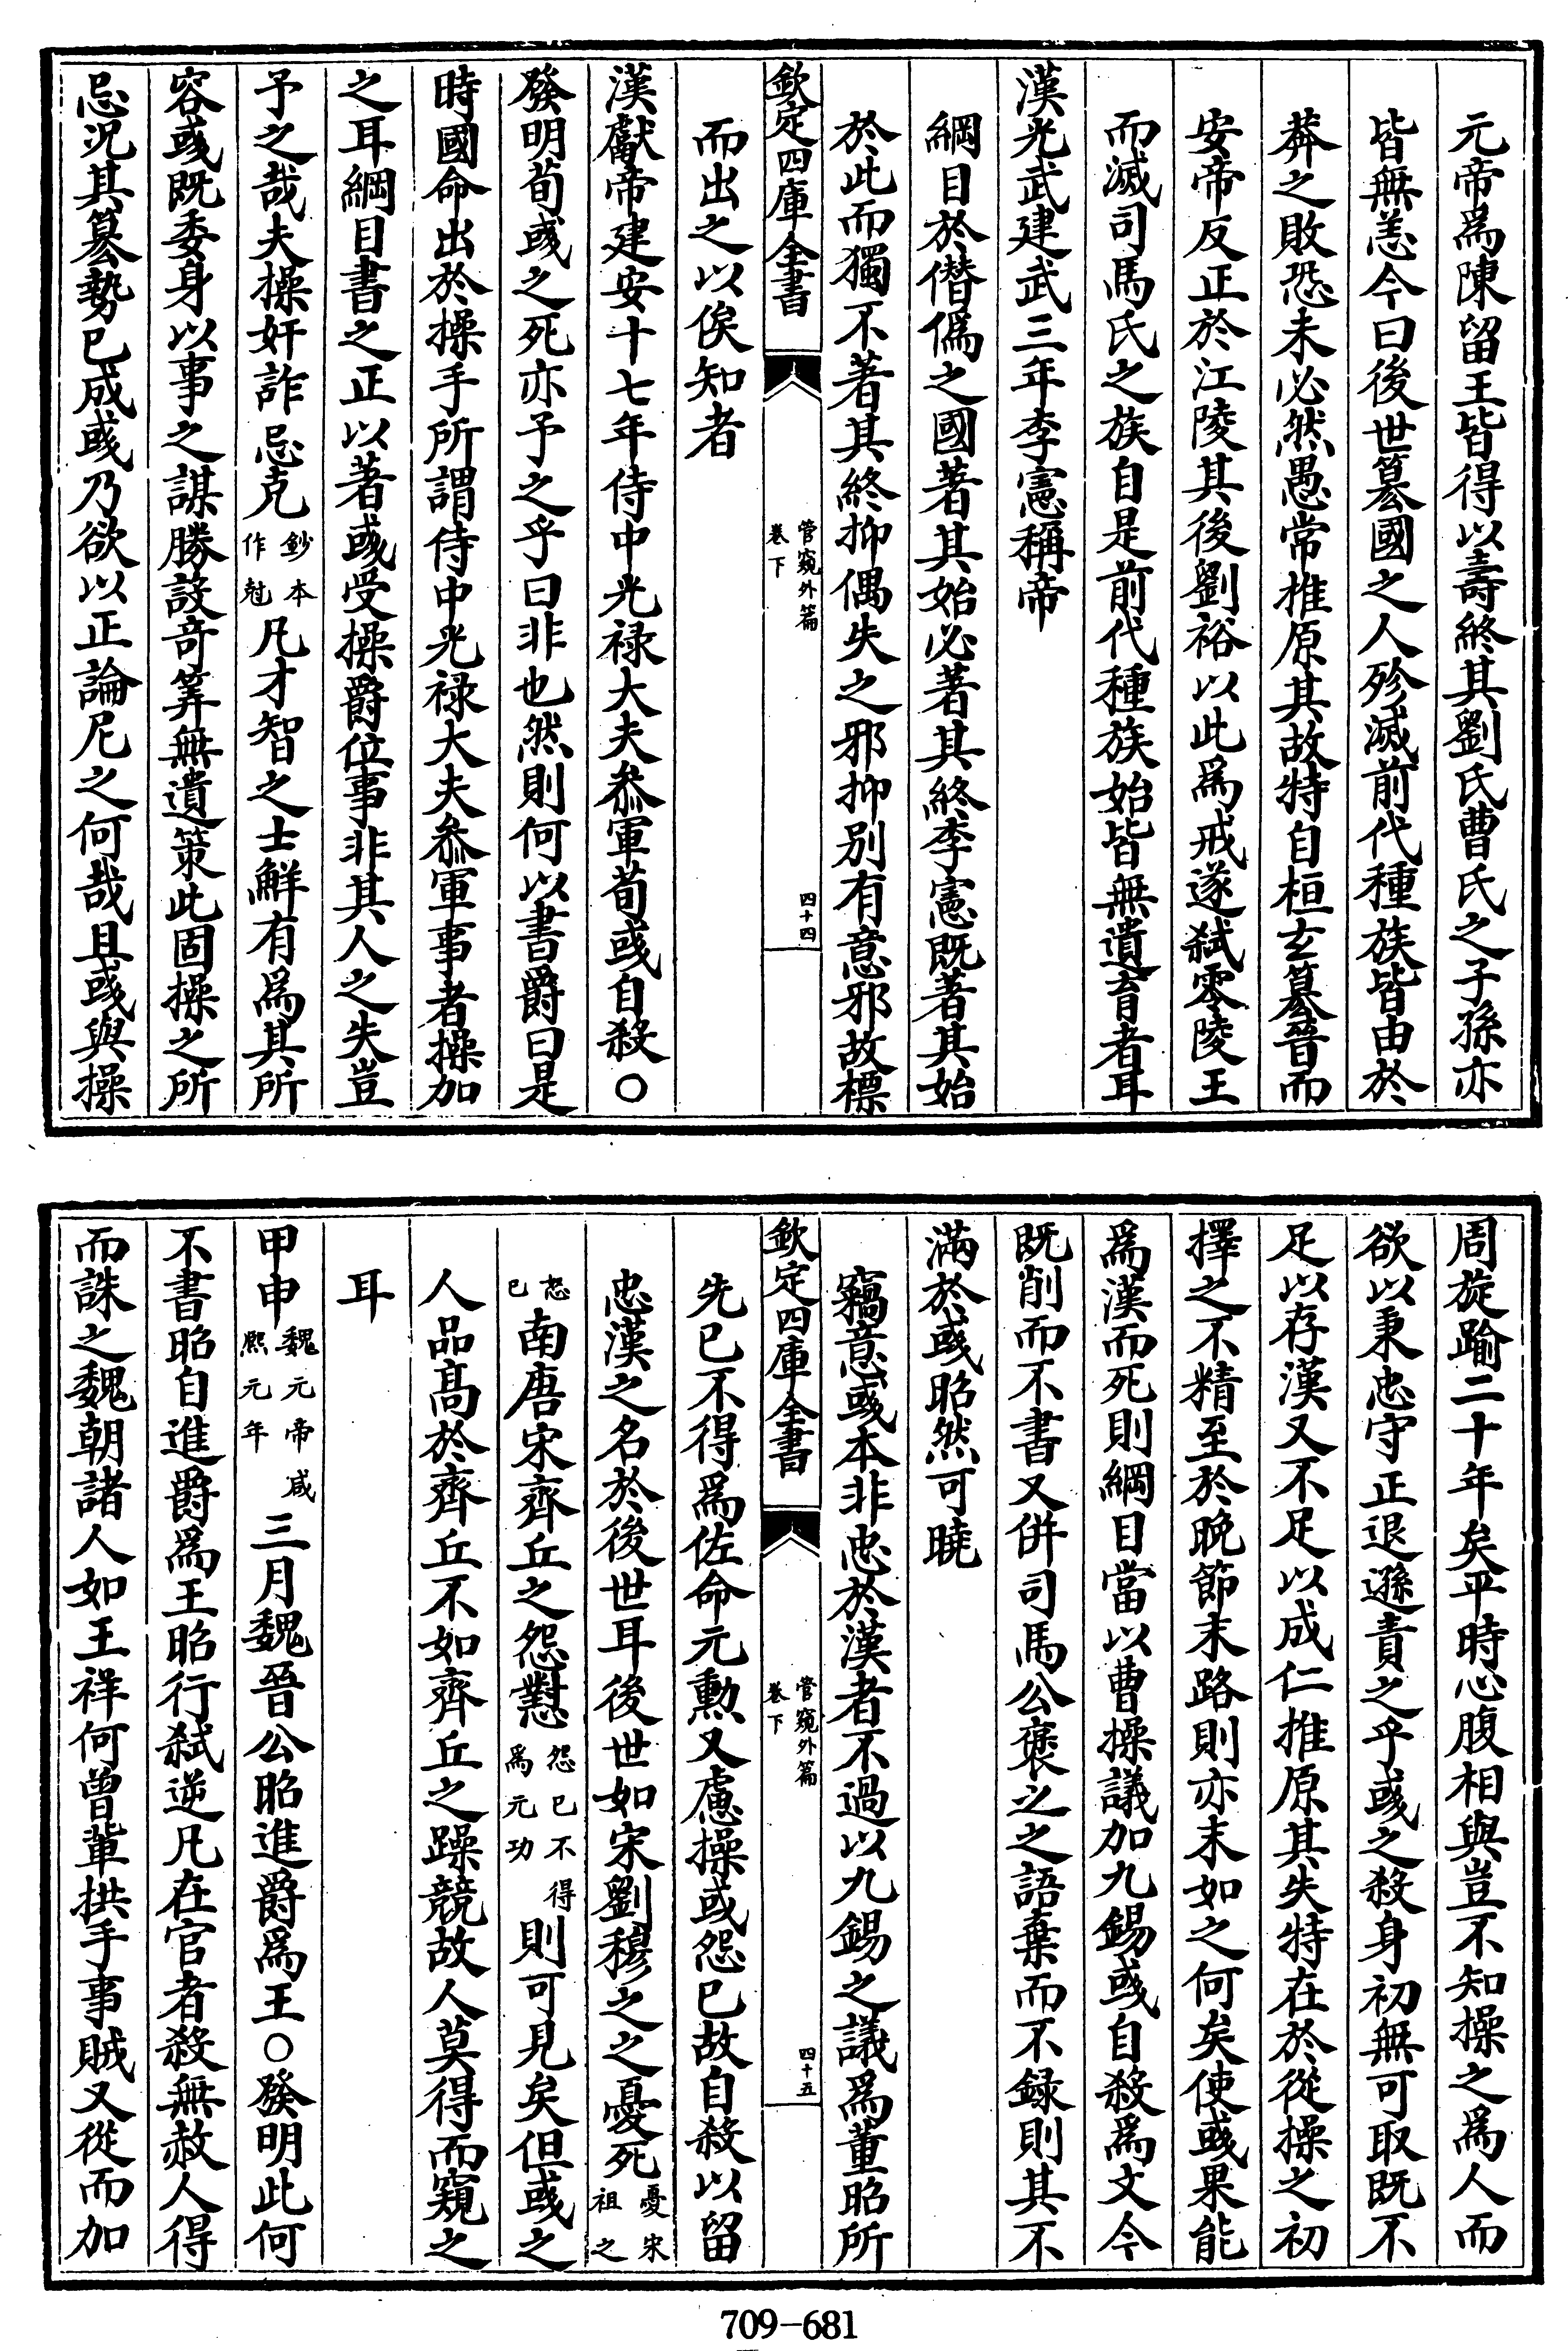 元帝爲陳留王皆得以壽終其劉氏曹氏之子孫亦
皆無恙今曰後世簒國之人殄滅前代種族皆由於
莽之敗恐未必然愚常推原其故特自桓玄簒晉而
安帝反正於江陵其後劉裕以此爲戒遂弑零陵王
而滅司馬氏之族自是前代種族始皆無遺育者耳
漢光武建武三年李憲稱帝
綱目於僭僞之國著其始必著其終李憲既著其始
於此而獨不著其終抑偶失之邪抑別有意邪故標
欽定四庫全書
管窺外篇
卷下
四十四
而出之以俟知者
漢獻帝建安十七年侍中光禄大夫叅軍荀彧自殺○
發明荀彧之死亦予之乎曰非也然則何以書爵曰是
時國命出於操手所謂侍中光禄大夫叅軍事者操加
之耳綱目書之正以著彧受操爵位事非其人之失豈
予之哉夫操奸詐忌克鈔本作尅凡才智之士鮮有爲其所
容彧既委身以事之謀勝設奇筭無遺策此固操之所
忌况其簒勢已成彧乃欲以正論尼之何哉且彧與操
周旋踰二十年矣平時心腹相與豈不知操之爲人而
欲以秉忠守正退遜責之乎彧之殺身初無可取既不
足以存漢又不足以成仁推原其失特在於從操之初
擇之不精至於晩節末路則亦末如之何矣使彧果能
爲漢而死則綱目當以曹操議加九錫彧自殺爲文今
既削而不書又併司馬公褒之之語棄而不録則其不
滿於彧昭然可曉
竊意彧本非忠於漢者不過以九錫之議爲董昭所
欽定四庫全書
管窺外篇
卷下
四十五
先已不得爲佐命元勲又慮操或怨已故自殺以留
忠漢之名於後世耳後世如宋劉穆之之憂死憂宋祖之
怒已南唐宋齊丘之怨懟怨已不得爲元功則可見矣但彧之
人品髙於齊丘不如齊丘之躁競故人莫得而窺之
耳
甲申魏元帝咸熈元年三月魏晉公昭進爵爲王○發明此何
不書昭自進爵爲王昭行弑逆凡在官者殺無赦人得
而誅之魏朝諸人如王祥何曾軰拱手事賊又從而加
709-681